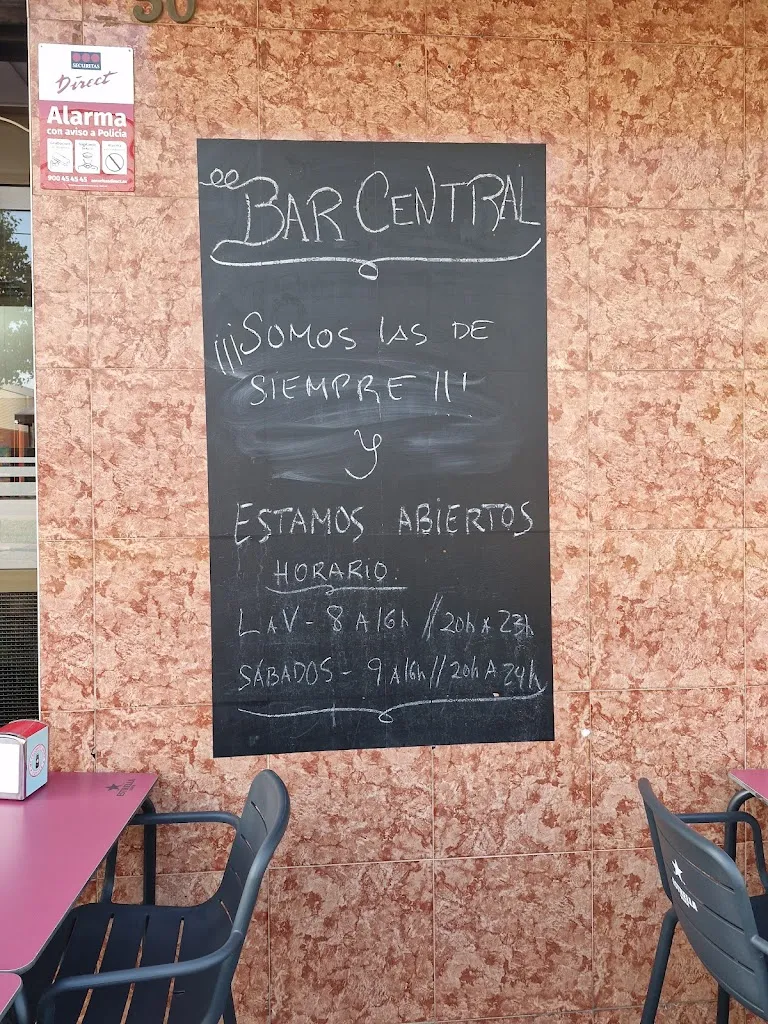 30
SECURITAS
Direct
Alarma
con aviso a Policía
900 45 45 45
BAR CENTRAL
¡¡¡SOMOS LAS DE
SIEMPRE!!!
y
ESTAMOS ABIERTOS
HORARIO
L A V - 8 A 16h // 20h A 23h
SÁBADOS - 9 A 16h // 20h A 24h